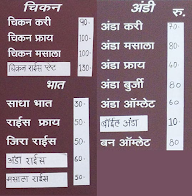 चिकन
चिकन करी 90-
चिकन फ्राय 100-
चिकन मसाला 100-
चिकन राईस प्लेट 130-
भात
साधा भात 30-
राईस फ्राय 50-
जिरा राईस 50-
अंडा राईस 60-
मसाला राईस 50-
अंडी रु.
अंडा करी 70-
अंडा मसाला 80-
अंडा फ्राय 40-
अंडा बुर्जी 80
अंडा ऑम्लेट 60-
बॉईल अंडा 10-
बन ऑम्लेट 80-